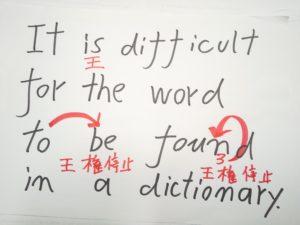 It is difficult
王
for the word
to be found
王 権停止
3
王権停止
in a dictionary.